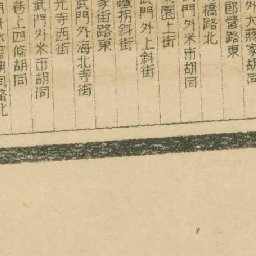 外大蔣家胡同
郎營路東
橋路北
門外米市胡同
園上街
武門外上斜街
鐵拐斜街
家街路東
武門外海北寺街
光寺西街
武門外米市胡同
巷上四條胡同